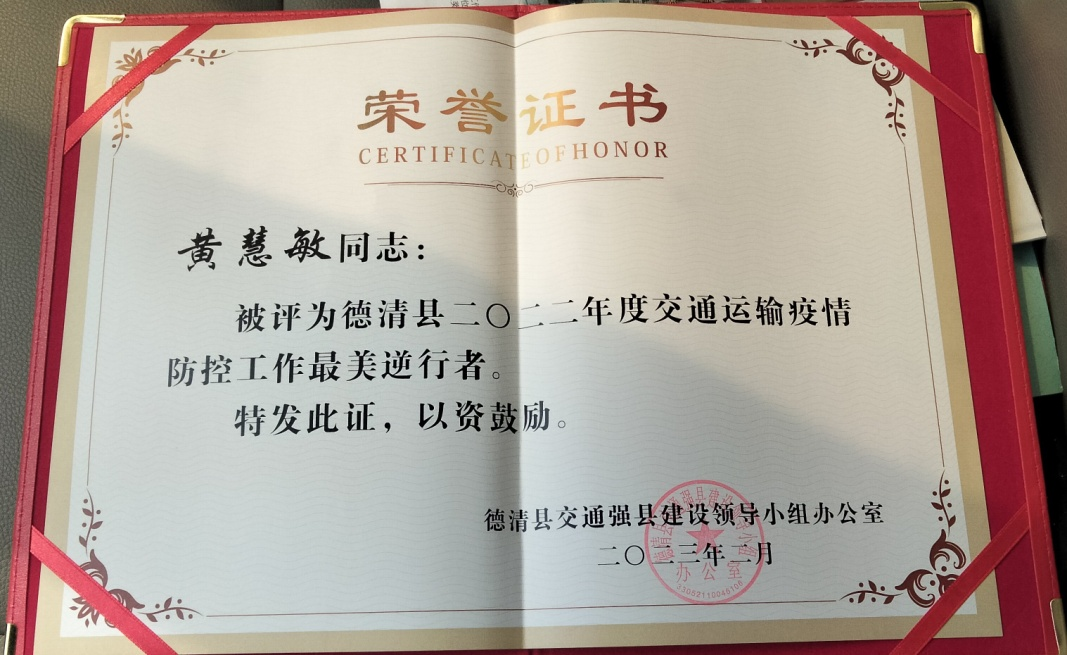 荣誉证书
CERTIFICATEOFHONOR
黄慧敏同志：
被评为德清县二〇二二年度交通运输疫情
防控工作最美逆行者。
特发此证，以资鼓励。
德清县交通强县建设领导小组办公室
二〇二三年二月
德清县交通强县建设领导小组
办公室